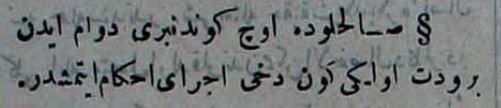 § صالحلوده اوچ كوندنبرى دوام ايدن
برودت اوايكى كون دخى اجراى احكام ايتمشدر.